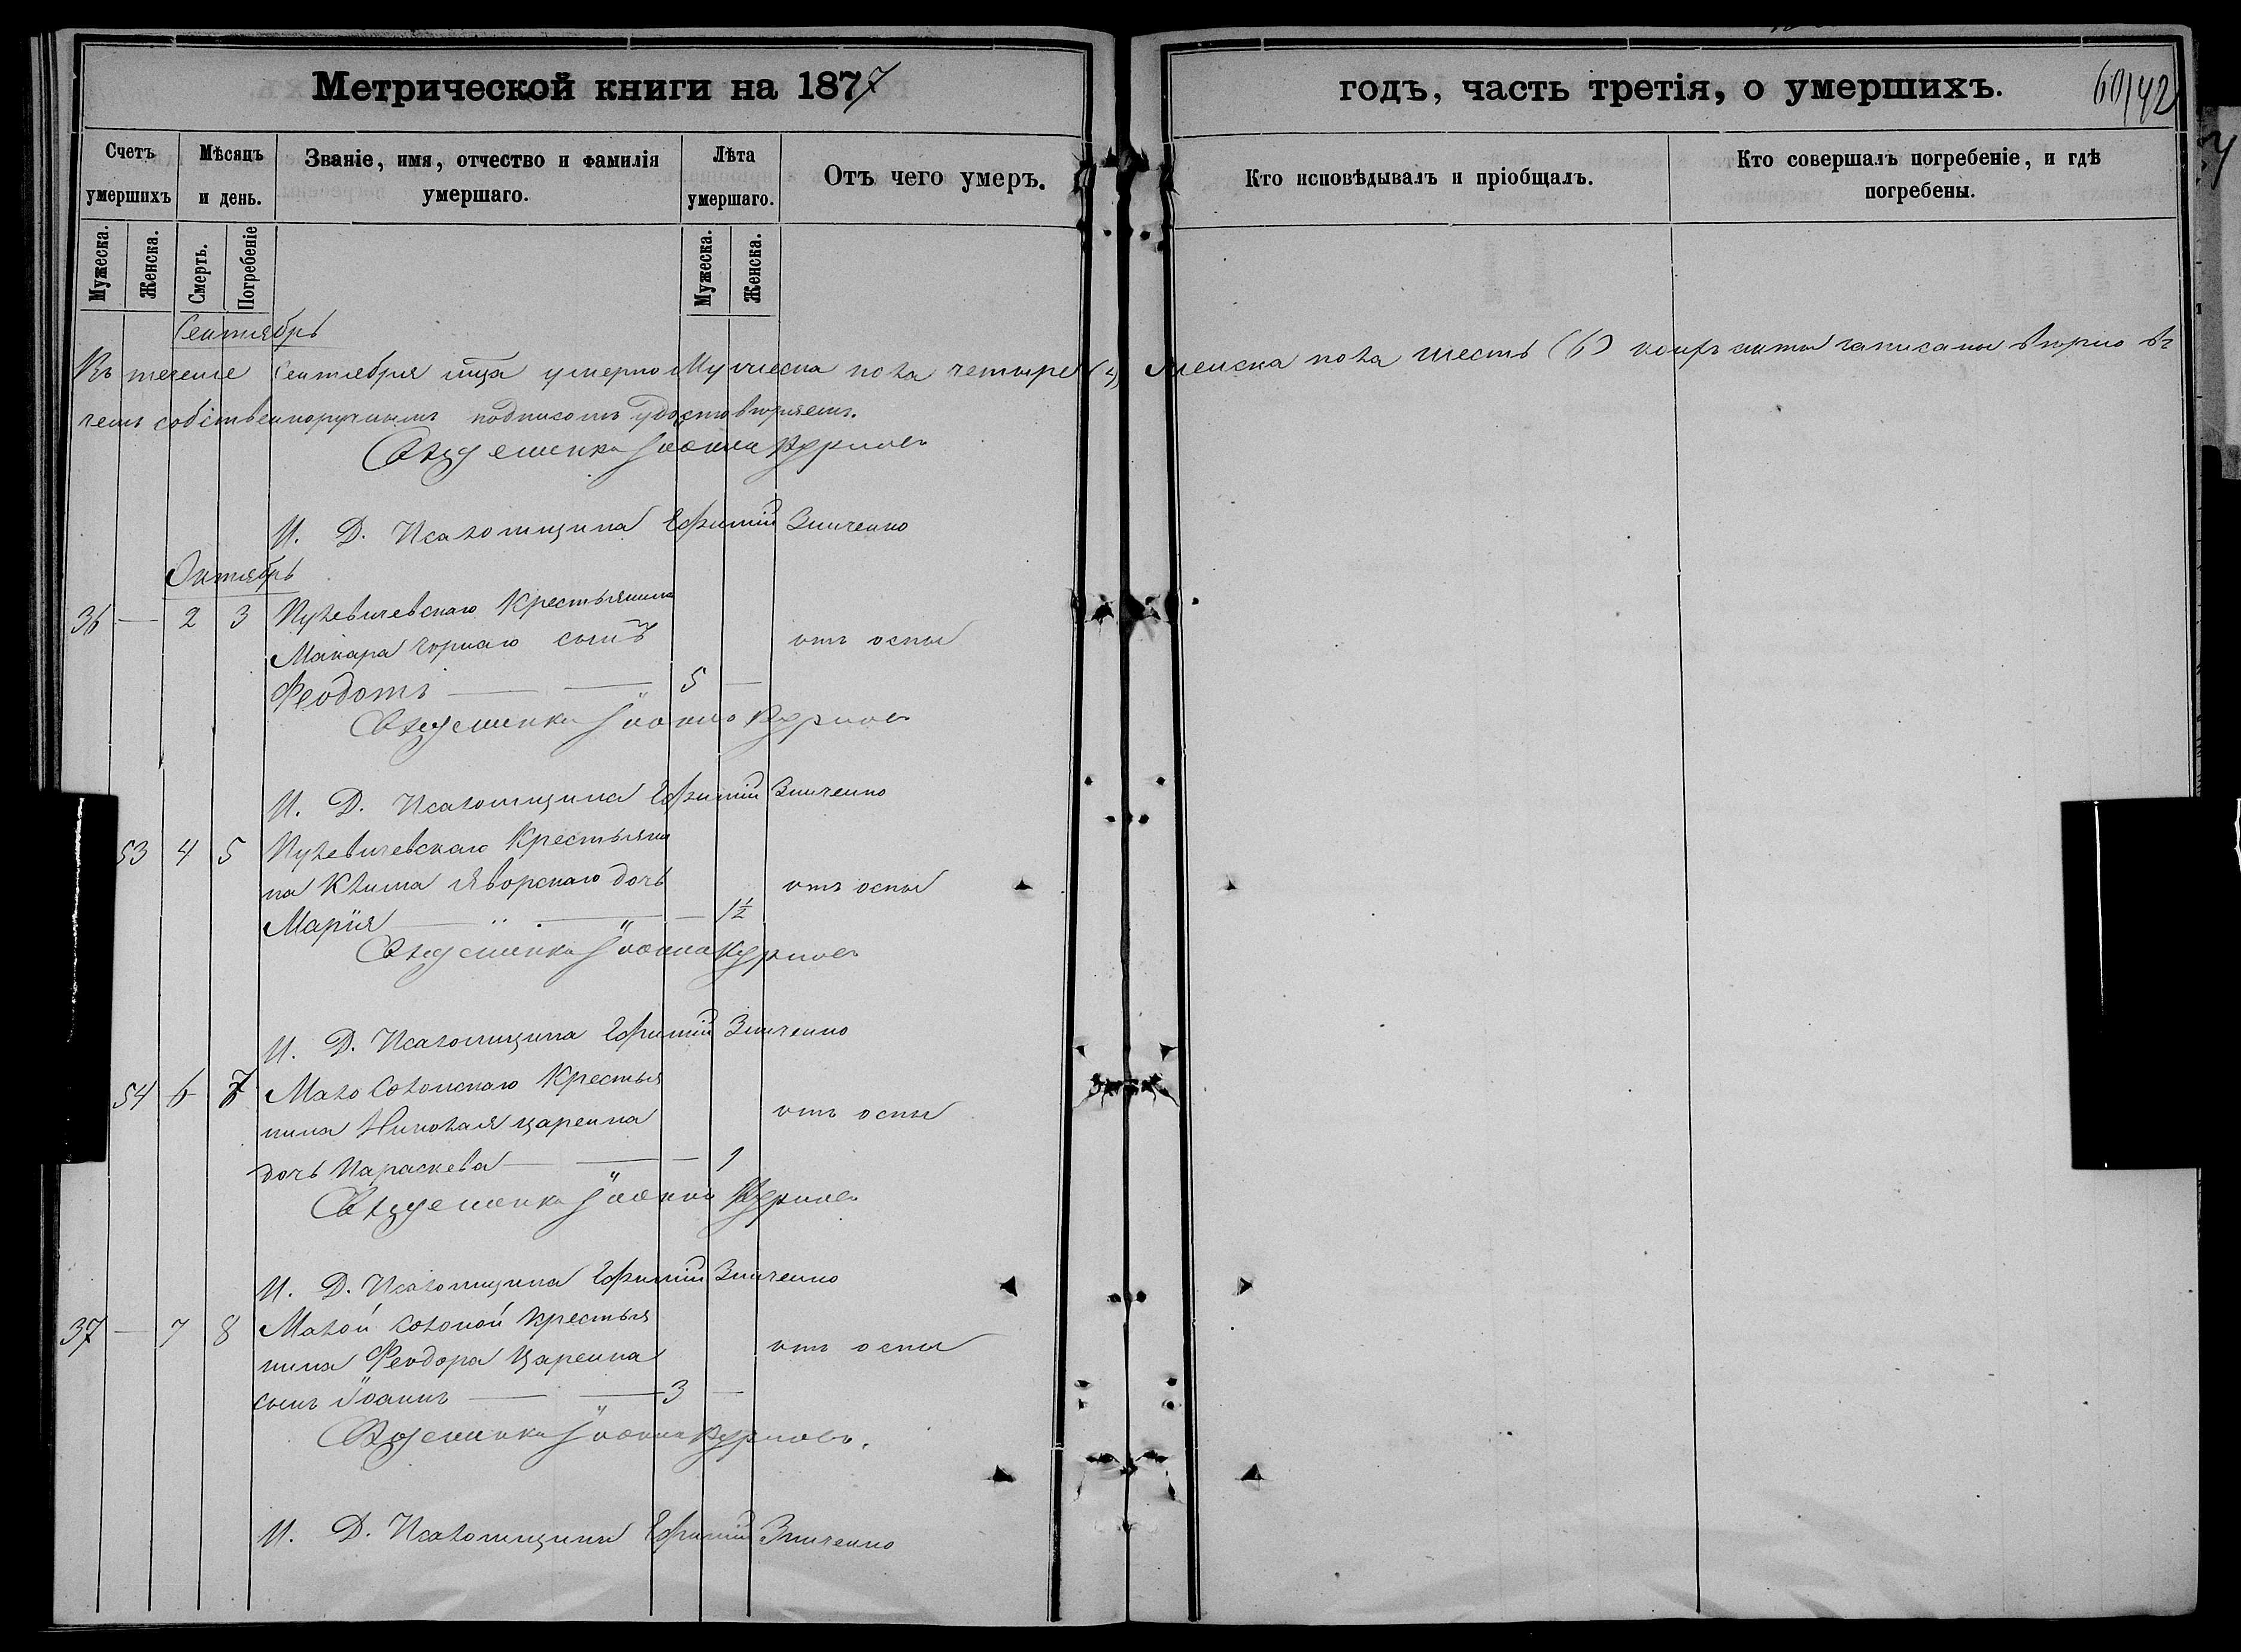 Метрической книги на 1877
годъ, часть третія, о умершихъ.
60/42
Счетъ умершихъ
Мѣсяцъ и день.
Званіе, имя, отчество и фамилія умершаго.
Лѣта умершаго.
Отъ чего умеръ.
Кто исповѣдывалъ и пріобщалъ.
Кто совершалъ погребеніе, и гдѣ погребены.
Мужеска.
Женска.
Смерть.
Погребеніе
Мужеска.
Женска.
Сентябрь
Въ теченіе Сентября мца умерло Мужеска пола четыре (4) Женска пола шесть (6) коихъ акты записаны вѣрно въ
чемъ собственноручнымъ подписомъ удостовѣряемъ.
Священникъ Іоаннъ
И. Д. Псаломщика Ефимій Зинченко
Октябрь
36 — 2 3 Крестьянина
Макара Чорнаго сынъ отъ оспы
Феодотъ — — 5 —
Священникъ Іоаннъ
И. Д. Псаломщика Ефимій Зинченко
53 4 5 Крестьяни
на Клима Яворскаго дочь отъ оспы
Марія — — — 1½
Священникъ Іоаннъ
И. Д. Псаломщика Ефимій Зинченко
54 6 7 Мало Солонскаго Крестья
нина Николая Царенка отъ оспы
дочь Параскева — — — 1
Священникъ Іоаннъ
И. Д. Псаломщика Ефимій Зинченко
37 — 7 8 Малой Солоной Крестья
нина Феодора Царенка отъ оспы
сынъ Іоаннъ — — 3 —
Священникъ Іоаннъ
И. Д. Псаломщика Ефимій Зинченко